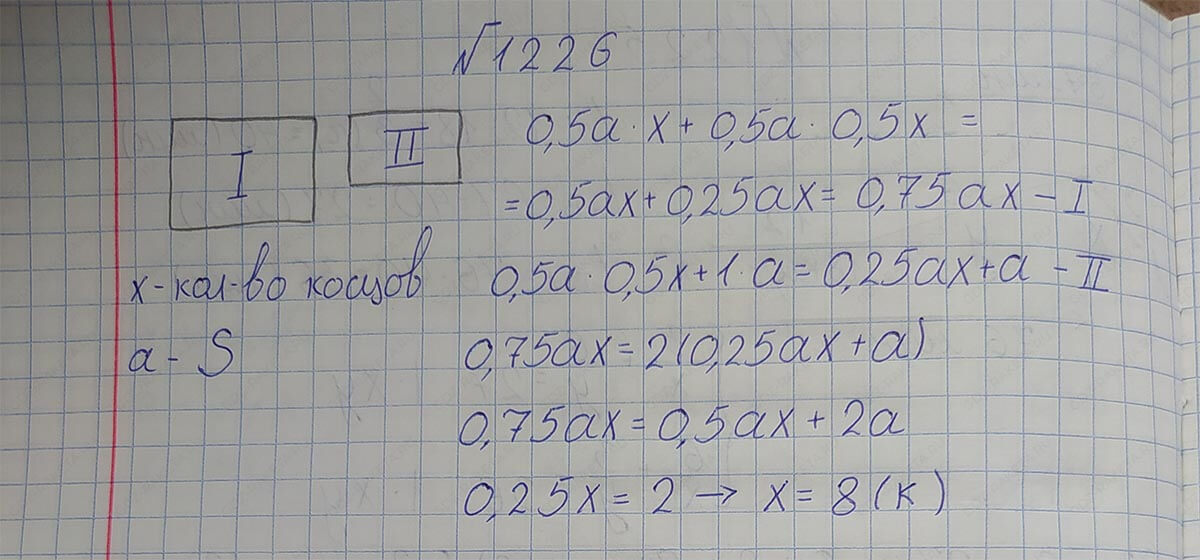 №1226
I
II
0,5a · x + 0,5a · 0,5x =
= 0,5ax + 0,25ax = 0,75ax - I
x - кол-во косцов
0,5a · 0,5x + 1 · a = 0,25ax + a - II
a - S
0,75ax = 2(0,25ax + a)
0,75ax = 0,5ax + 2a
0,25x = 2 → x = 8 (к)